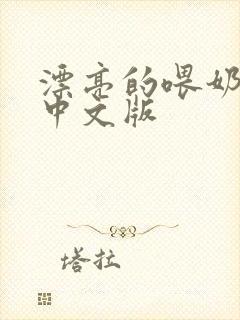 漂亮的喂奶
中文版
塔拉